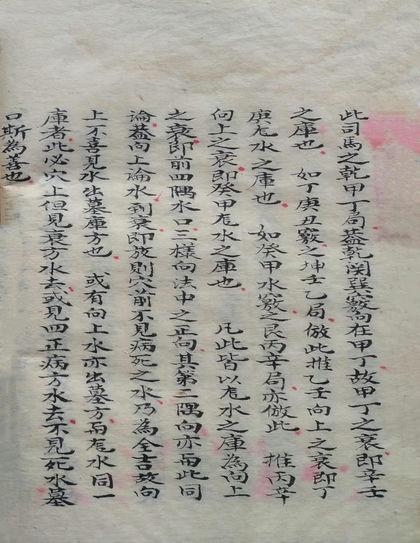 此司馬之乾甲丁局蓋乾関巽竅向在甲丁故甲丁之衰即辛壬
之庫也　如丁庚丑竅之坤壬乙局倣此推乙壬向上之衰即丁
庚尨水之庫也　如癸甲水竅之艮丙辛局亦倣此　推丙辛
向上之衰即癸甲尨水之庫也　凡此皆以尨水之庫為向上
之衰即前四隅水口三樣向法中之正向其第二隅向亦與此同
論蓋向上論水到衰即放則穴前不見病死之水乃為全吉故向
上不喜見水出墓庫方也　或有向上水亦出墓方與尨水同一
庫者此必穴上但見衰方水去或見四正病方水去不見死水墓
口斯為善也